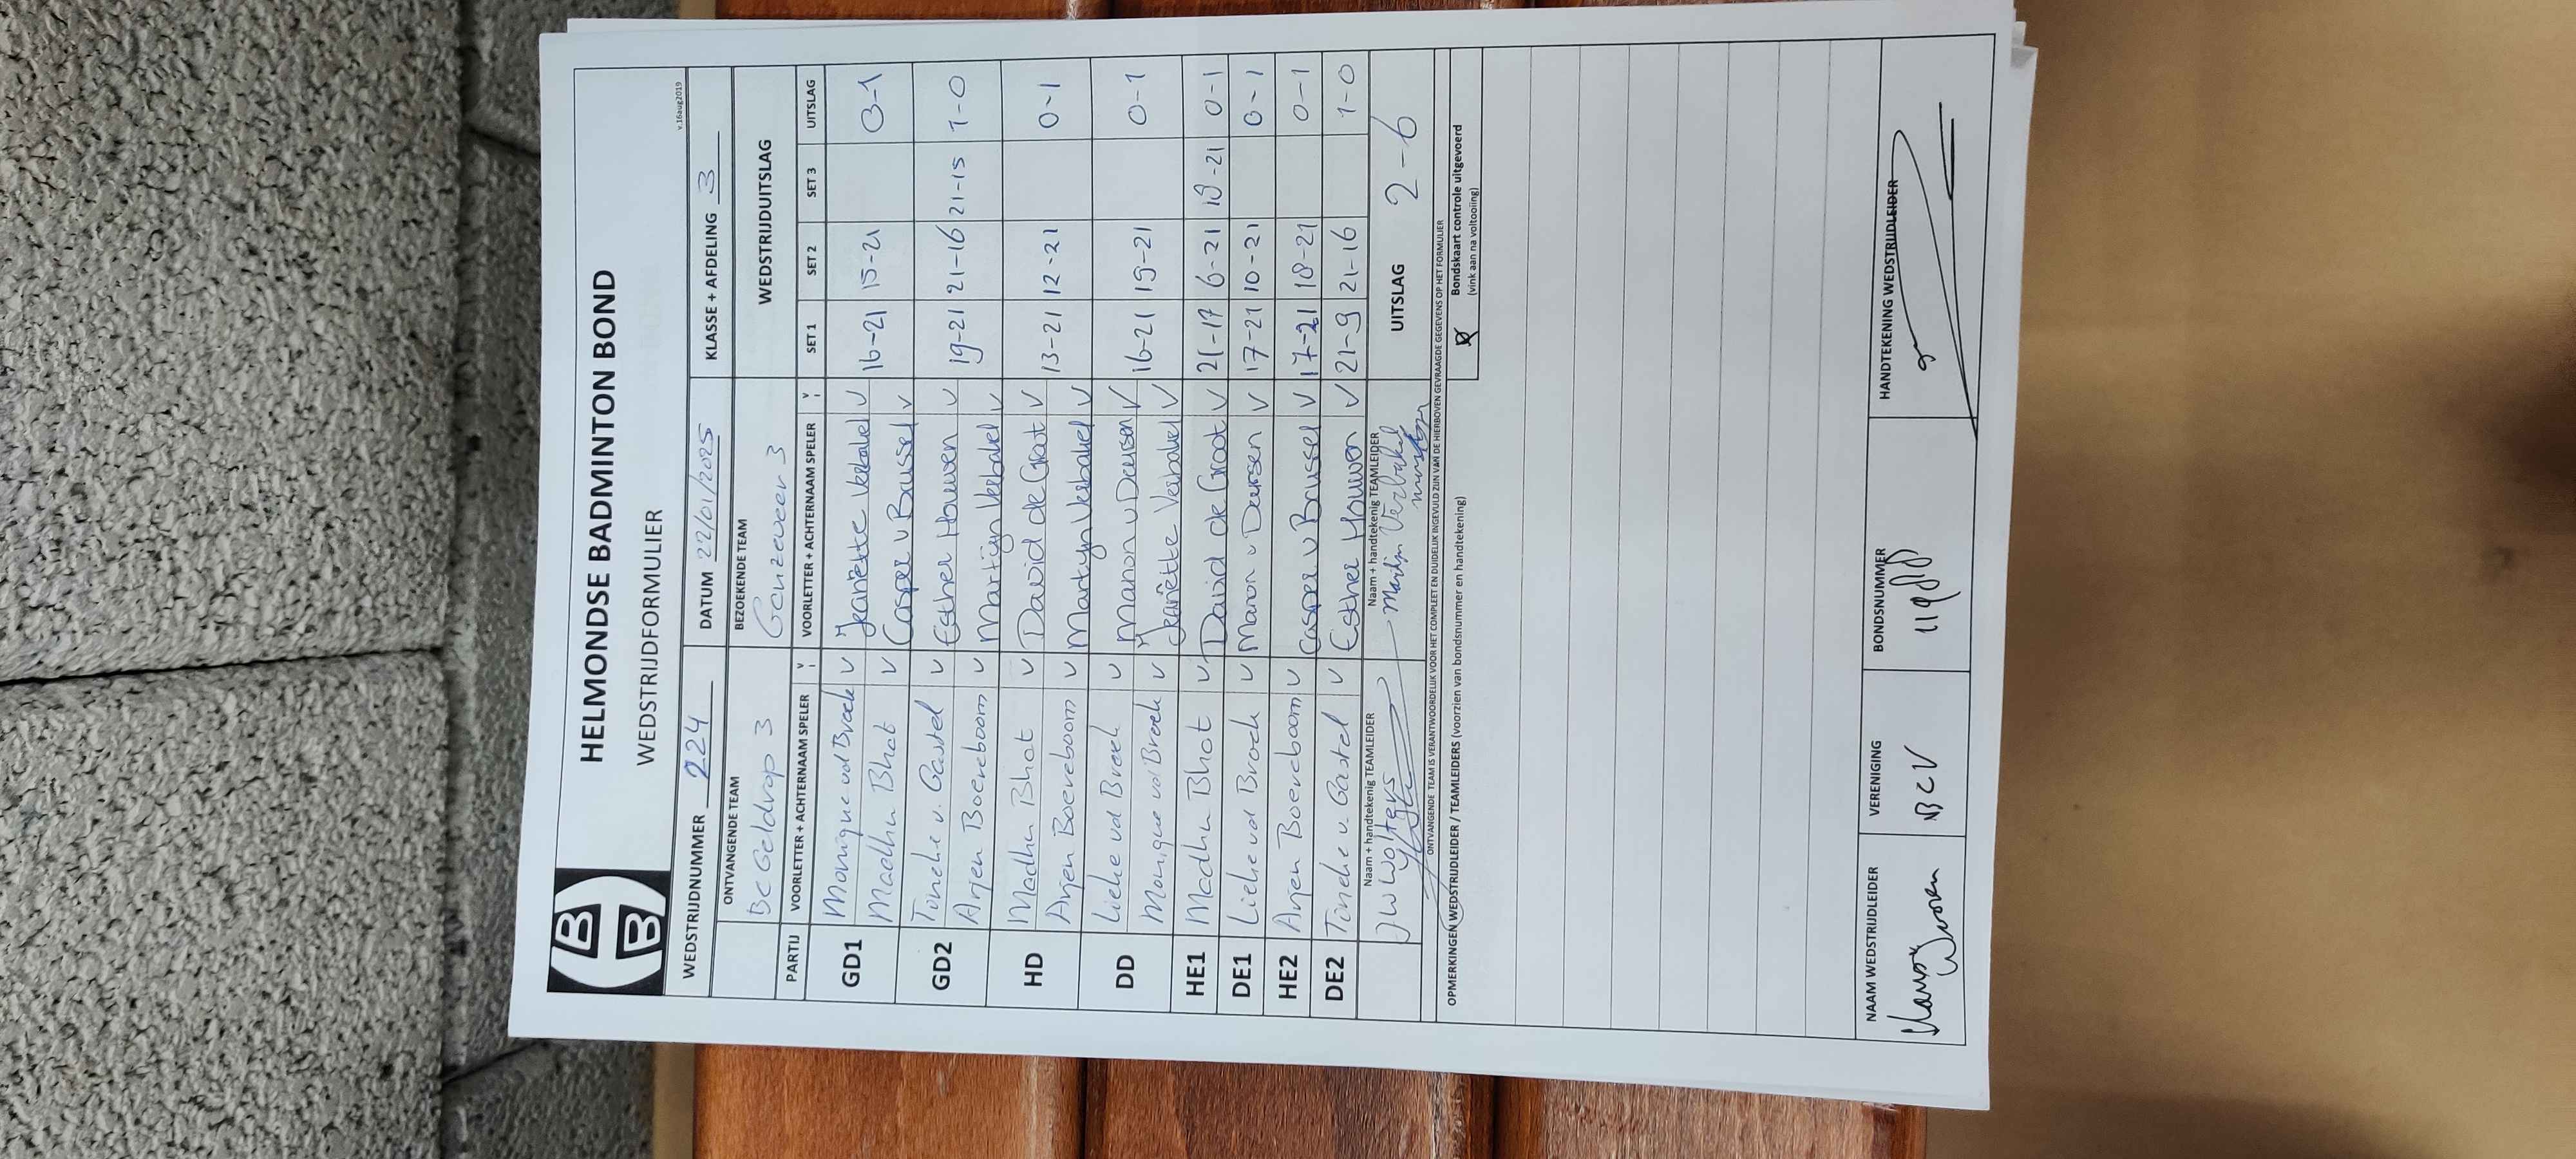 HELMONDSE BADMINTON BOND
WEDSTRIJDFORMULIER
v.16aug2019
WEDSTRIJDNUMMER 224 DATUM 22/01/2025 KLASSE + AFDELING 3
ONTVANGENDE TEAM BEZOEKENDE TEAM WEDSTRIJDUITSLAG
BC Geldrop 3 Genzeveer 3
PARTIJ VOORLETTER + ACHTERNAAM SPELER V VOORLETTER + ACHTERNAAM SPELER V SET 1 SET 2 SET 3 UITSLAG
GD1 Monique vd Broek V Jeanette Verbakel V 16-21 15-21 0-1
Madhu Bhat V Casper v Brussel V
GD2 Tineke v. Gastel V Esther Houwen V 19-21 21-16 21-15 1-0
Arjen Boereboom V Martijn Verbakel V
HD Madhu Bhat V David de Groot V 13-21 12-21 0-1
Arjen Boereboom V Martijn Verbakel V
DD Lieke vd Broek V Manon v Deursen V 16-21 19-21 0-1
Monique vd Broek V Jeanette Verbakel V
HE1 Madhu Bhat V David de Groot V 21-17 6-21 18-21 0-1
DE1 Lieke vd Broek V Manon v Deursen V 17-21 10-21 0-1
HE2 Arjen Boereboom V Casper v Brussel V 17-21 18-21 0-1
DE2 Tineke v. Gastel V Esther Houwen V 21-9 21-16 1-0
Naam + handtekenig TEAMLEIDER Naam + handtekenig TEAMLEIDER UITSLAG 2-6
JW Wolters Martijn Verbakel
ONTVANGENDE TEAM IS VERANTWOORDELIJK VOOR HET COMPLEET EN DUIDELIJK INGEVULD ZIJN VAN DE HIERBOVEN GEVRAAGDE GEGEVENS OP HET FORMULIER
OPMERKINGEN WEDSTRIJDLEIDER / TEAMLEIDERS (voorzien van bondsnummer en handtekening)
Bondskaart controle uitgevoerd
(vink aan na voltooiing)
NAAM WEDSTRIJDLEIDER VERENIGING BONDSNUMMER HANDTEKENING WEDSTRIJDLEIDER
BCV